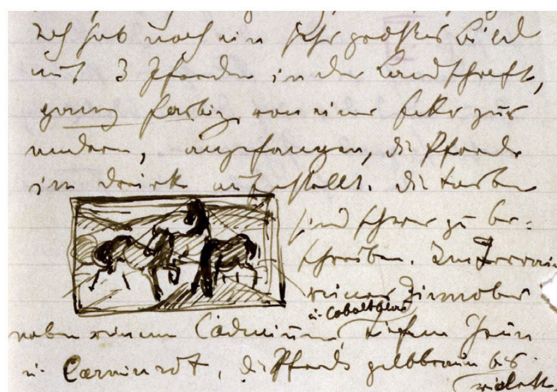 Ich hab noch ein sehr großes Bild
mit 3 Pferden in der Landschaft,
ganz farbig von einer Ecke zur
andern, angefangen, die Pferde
im Dreieck aufgestellt. Die Farben
sind schwer zu be-
schreiben. Im Terrain
reiner Zinnober
u. Cobaltblau
neben reinem Cadmium, tiefem Grün
u. Carminrot, die Pferde gelbbraun bis
violett